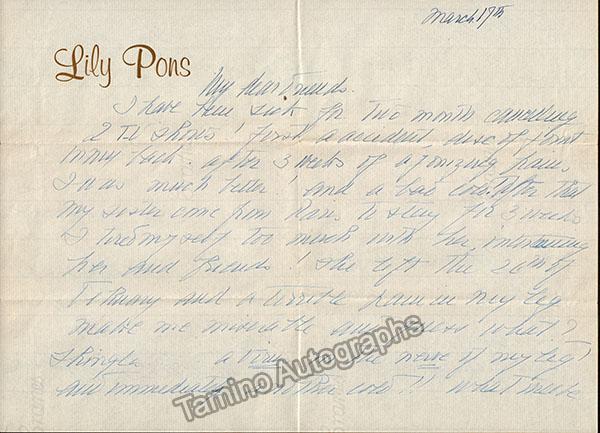 March 17th
Lily Pons
My dear Friends.
I have been sick for two month cancelling
2 T.V. Shows! first a accident, disc of joint
in my back. after 3 weeks of agonizing pain
I was much better! and a bad cold. after that
my sister come from Paris to stay for 3 weeks
I tired myself too much with her, intertaining
her and friends! She left the 26th of
February and a terrible pain in my leg
make me miserable and guess what?
Shingles a virus in the nerve of my leg!
and immediately another cold!! what
Tamino Autographs